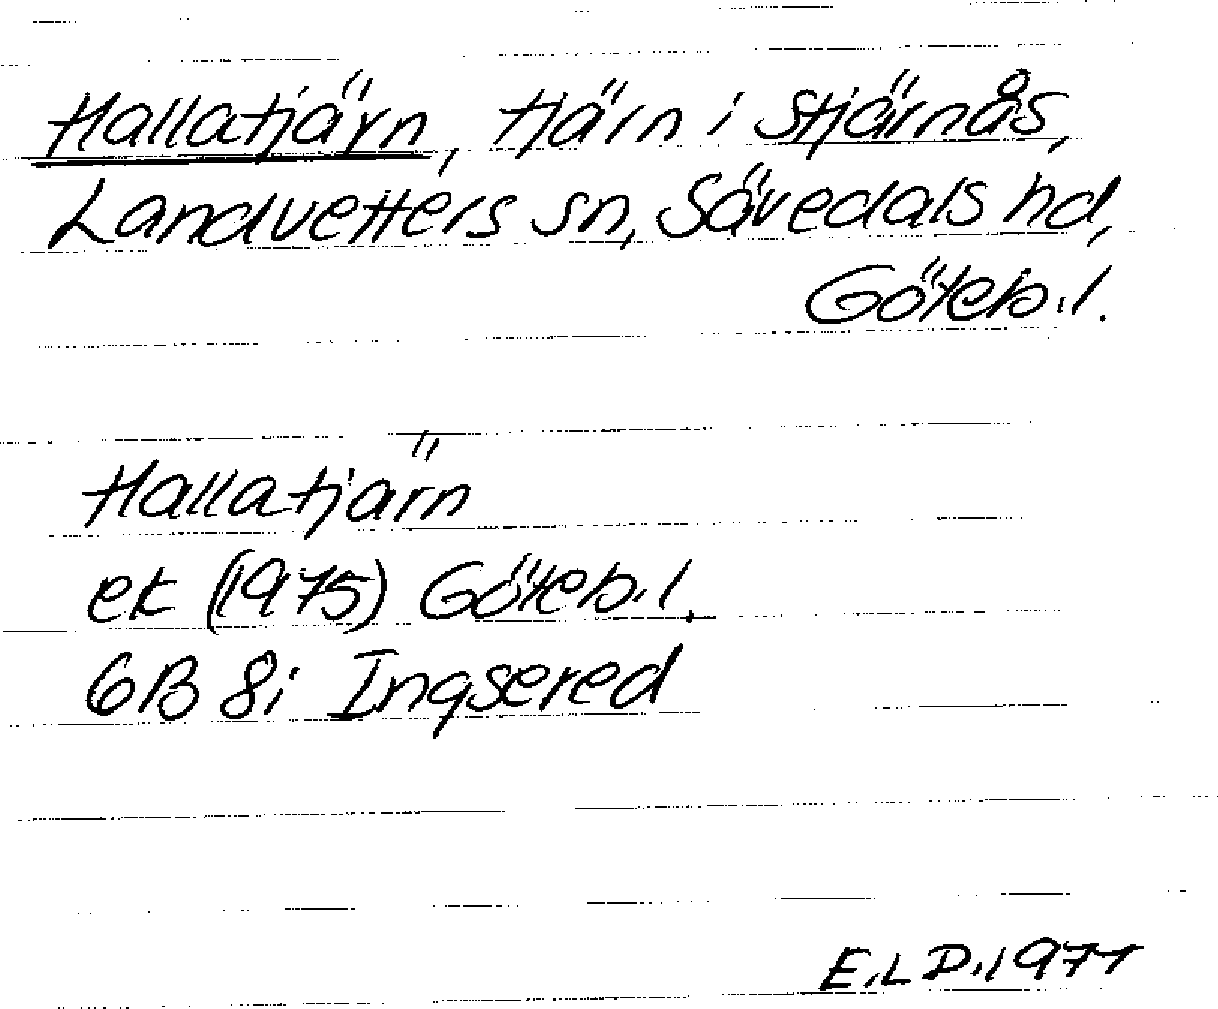 Hallatjärn, tjärn i Stjärnås,
Landvetters sn, Sävedals hd,
Göteb.l.
Hallatjärn
ek (1975) Göteb.l.
6B 8i Ingsered
E.L.D. 1977